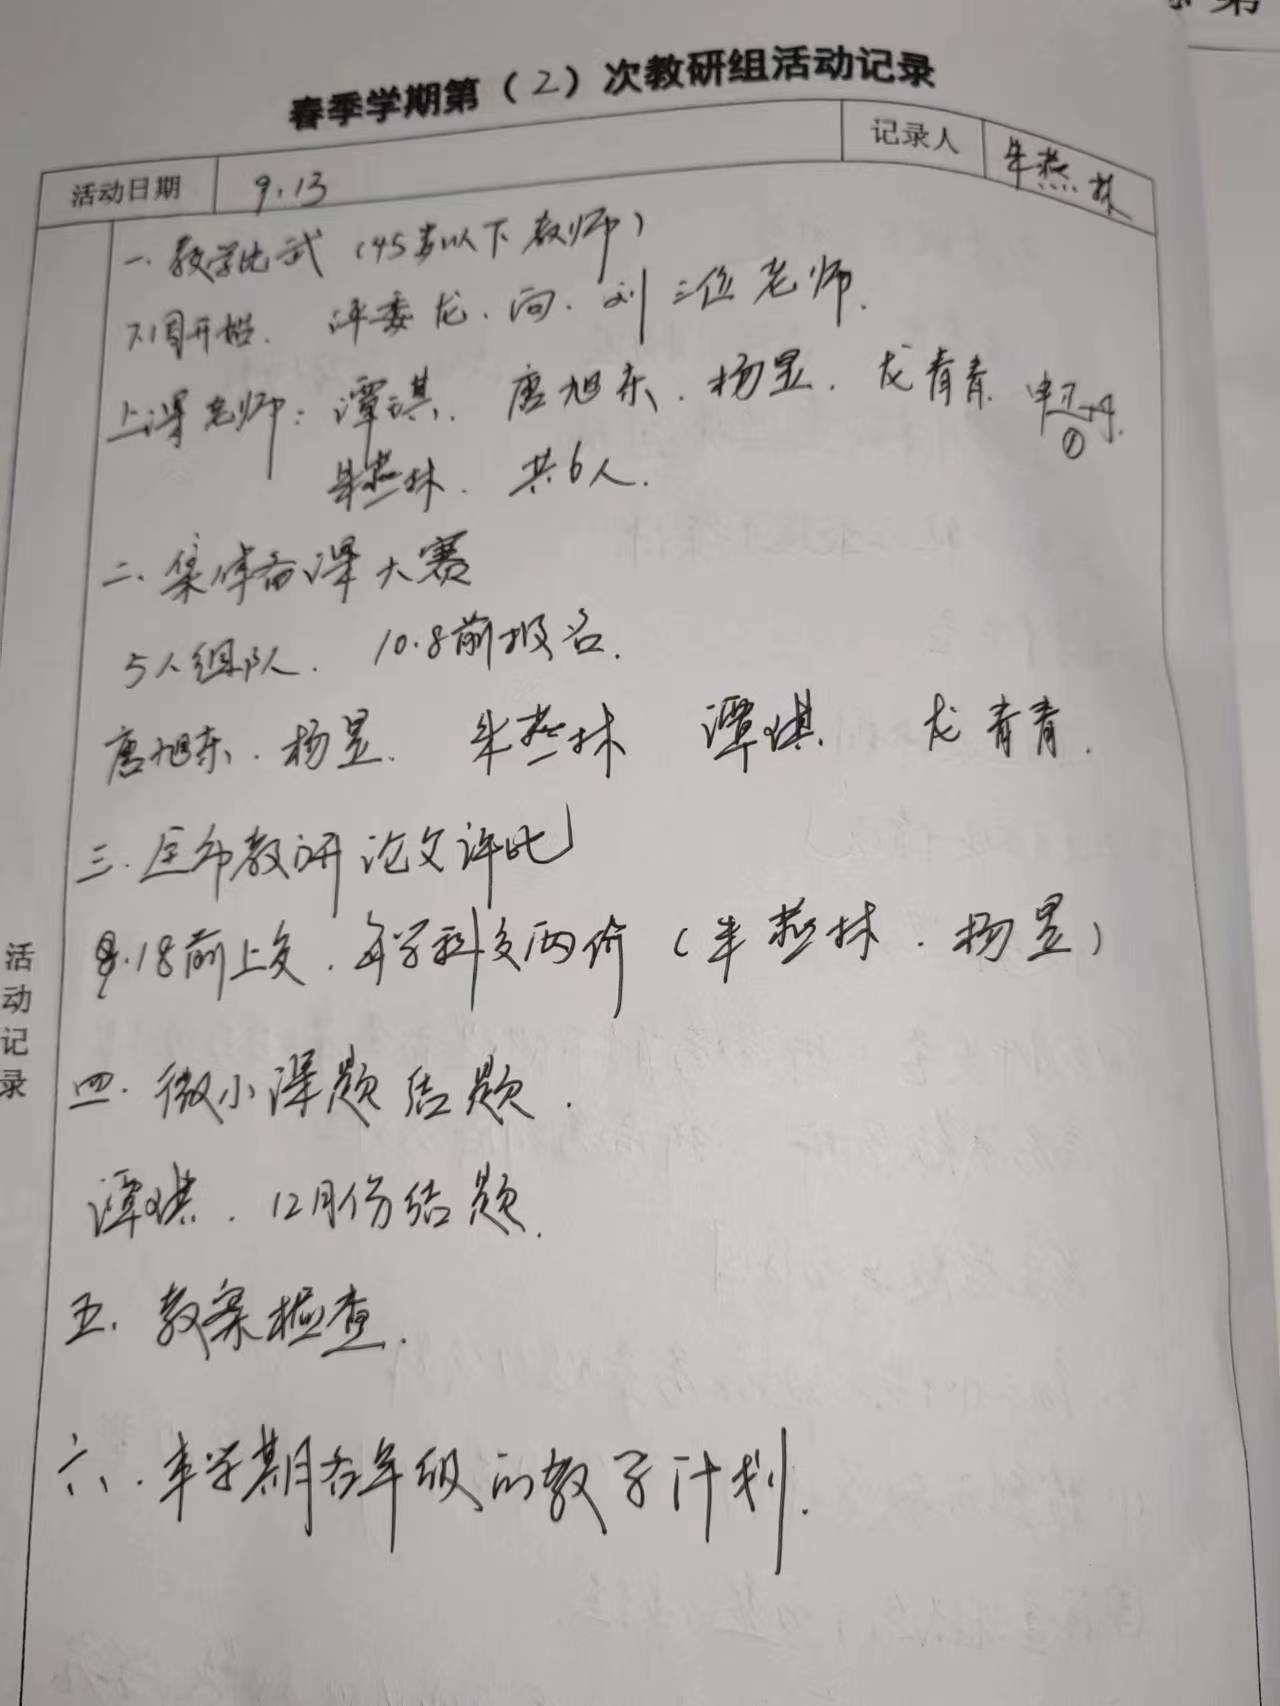 春季学期第（2）次教研组活动记录
活动日期 9.13 记录人 朱燕林
一、教学比武（45岁以下教师）
下周开始. 评委龙、向、刘三位老师.
上课老师：谭琪. 唐旭东. 杨昱. 龙青青
①
朱燕林. 共6人.
二、集体备课大赛
5人组队. 10.8前报名.
唐旭东. 杨昱. 朱燕林 谭琪 龙青青.
三. 教研论文评比
9.18前上交. 每学科交两份（朱燕林. 杨昱）
四. 微小课题结题.
谭琪. 12月份结题.
五. 教案检查.
六. 本学期各年级的教学计划.
活动记录
第